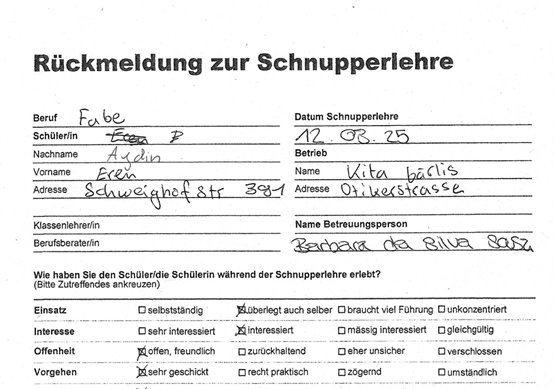 Rückmeldung zur Schnupperlehre
Beruf Fabe
Schüler/in Eren P
Nachname Aydin
Vorname Eren
Adresse Schweighofstr 391
Klassenlehrer/in
Berufsberater/in
Datum Schnupperlehre
12. 03. 25
Betrieb
Name Kita bärlis
Adresse Otikerstrasse
Name Betreuungsperson
Barbara da Silva
Wie haben Sie den Schüler/die Schülerin während der Schnupperlehre erlebt?
(Bitte Zutreffendes ankreuzen)
Einsatz ☐ selbstständig ☒ überlegt auch selber ☐ braucht viel Führung ☐ unkonzentriert
Interesse ☐ sehr interessiert ☒ interessiert ☐ mässig interessiert ☐ gleichgültig
Offenheit ☒ offen, freundlich ☐ zurückhaltend ☐ eher unsicher ☐ verschlossen
Vorgehen ☒ sehr geschickt ☐ recht praktisch ☐ zögernd ☐ umständlich